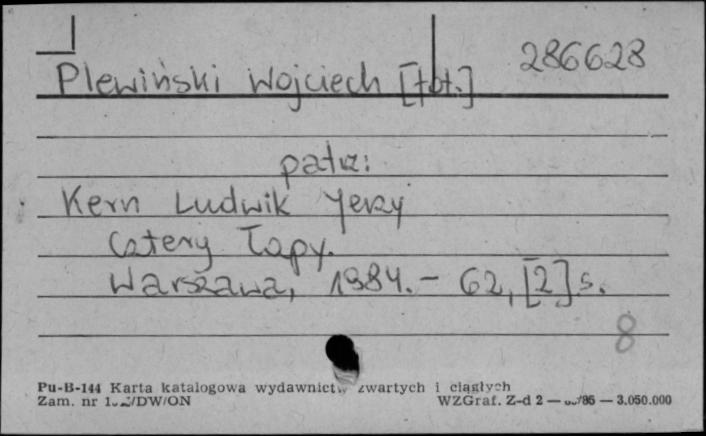 286628
Plewiński Wojciech [fot.]
patrz:
Kern Ludwik Jerzy
Cztery Łapy.
Warszawa, 1984. – 62, [2] s.
8
Pu-B-144 Karta katalogowa wydawnictw zwartych i ciągłych
Zam. nr /DW/ON WZGraf. Z-d 2 — /86 — 3.050.000